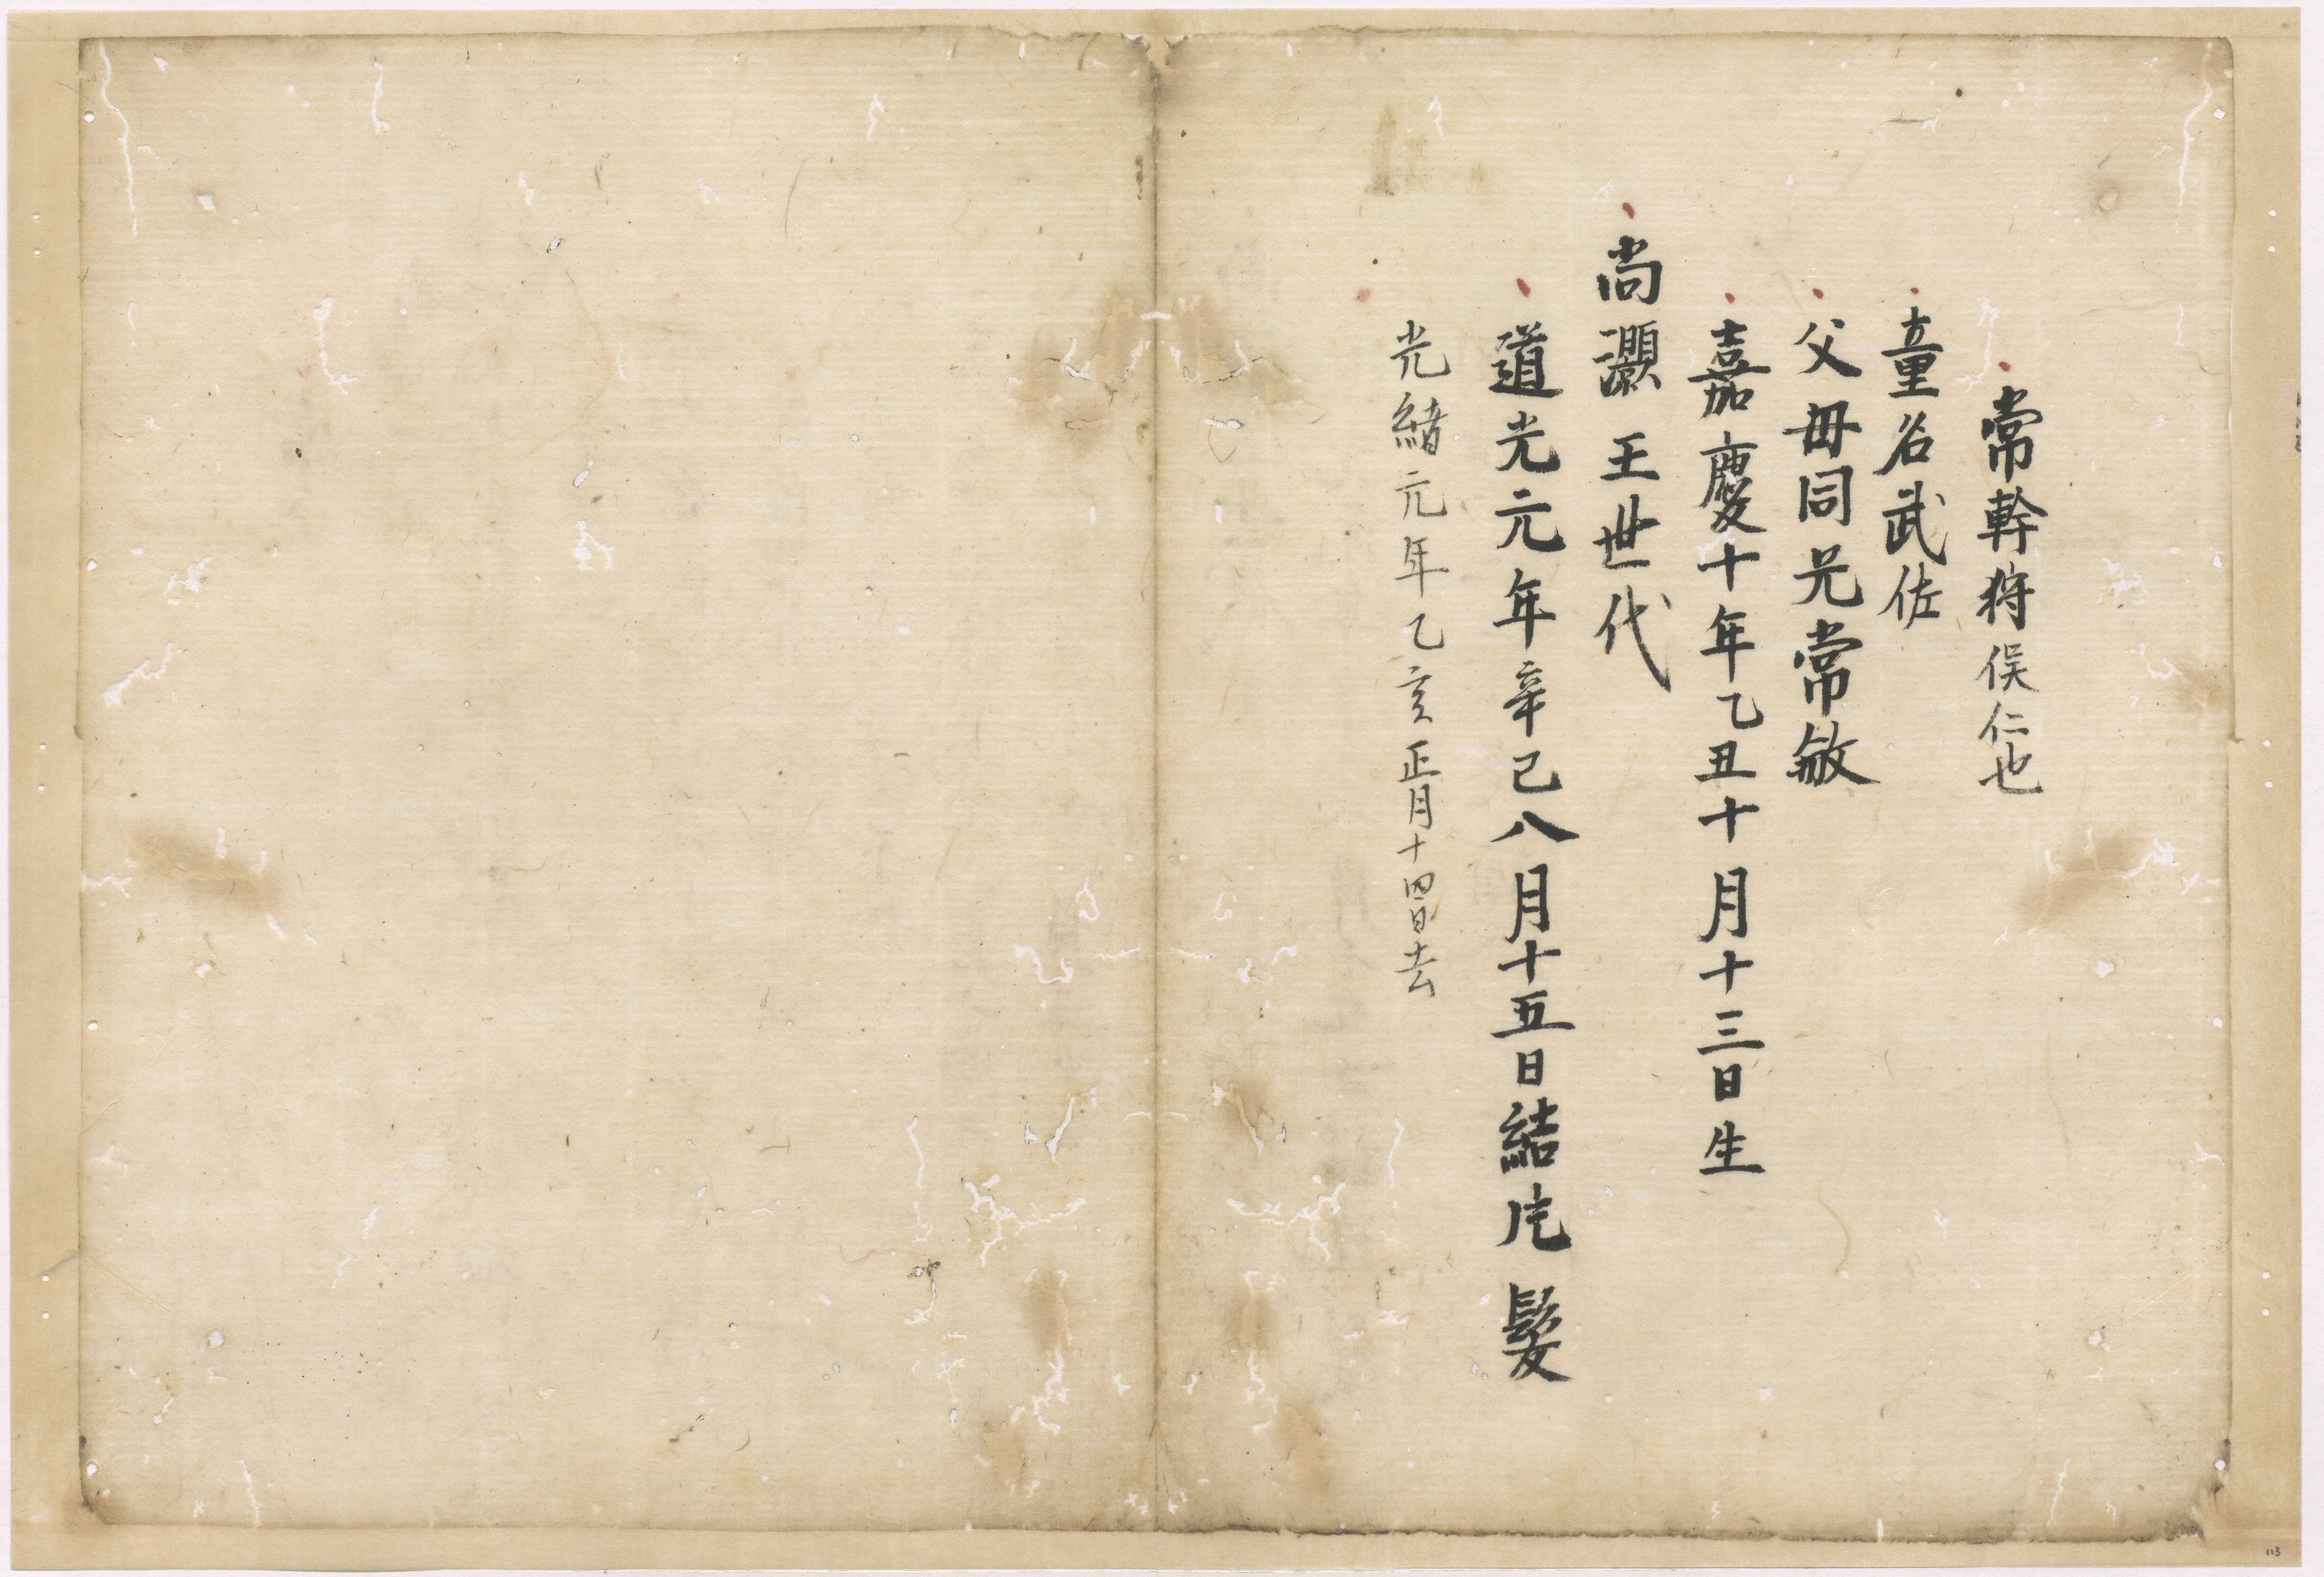 常幹狩俣仁也
童名武佐
父母同兄常敏
嘉慶十年乙丑十月十三日生
尚灝王世代
道光元年辛已八月十五日結片髮
光緒元年乙亥正月十四日去
113